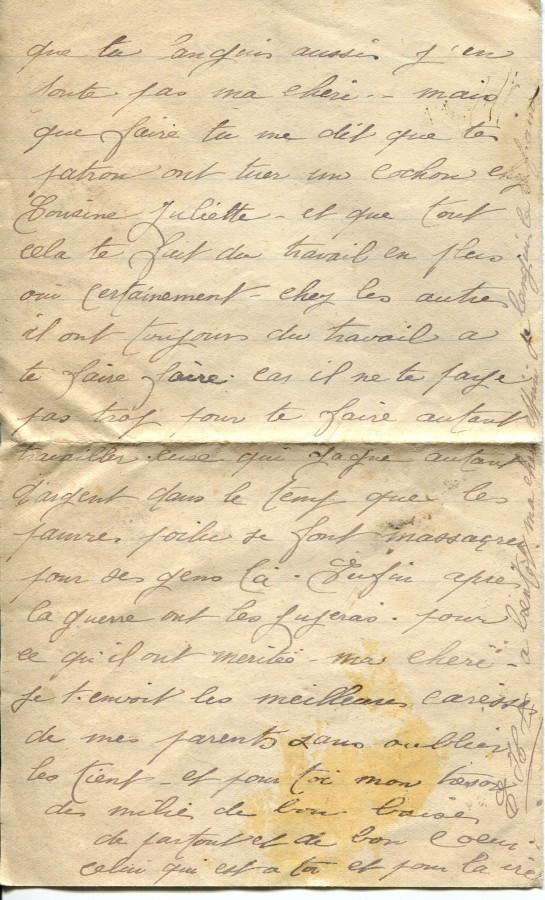 que tu languis aussi j'en
doute pas ma cheri - mais
que faire tu me dit que tes
patron ont tuer un cochon chez
Cousine Juliette - et que tout
cela te fait du travail en plus
oui certainement - chez les autres
il ont toujours du travail a
te faire faire. car il ne te paye
pas trop pour te faire autant
travailler. euse qui gagne autant
d'argent dans le temp que les
pauvres poilu se font massacrer
pour ses gens là. Enfin apres
la guerre ont les jugeras. pour
ce qu'il ont meritée - ma cheri -
je t'envoit les meilleures caresses
de mes parents sans oublier
les tient - et pour toi mon tresor
des milie de bon baisés
de partout et de bon Coeur
celui qui est a toi et pour la vie
a bientôt ma cheri je languis le